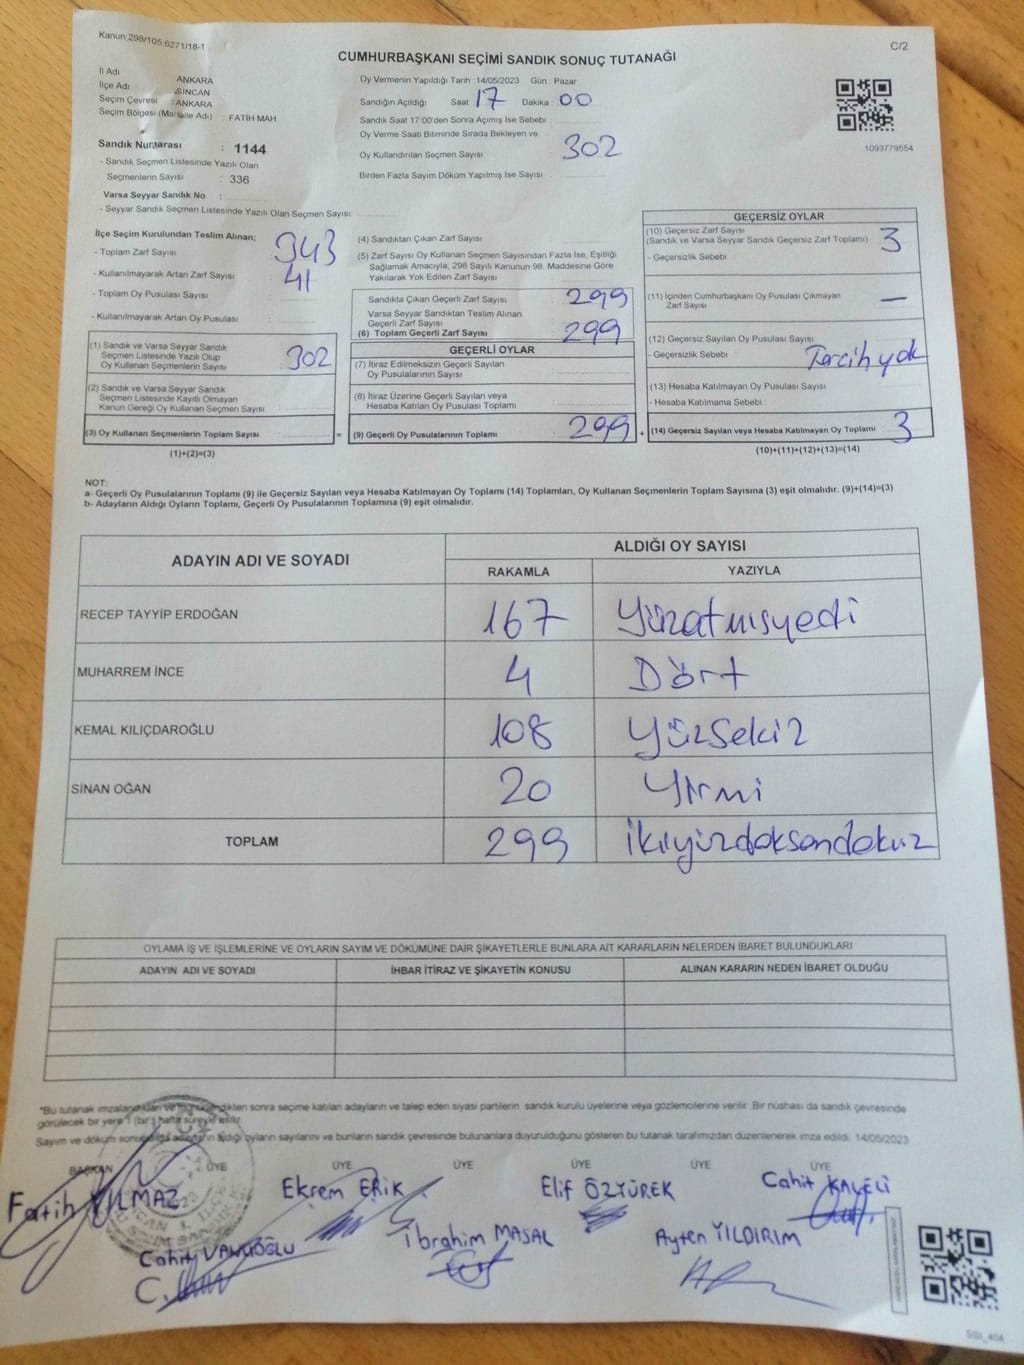 Kanun:298/105,6271/18-1
C/2
CUMHURBAŞKANI SEÇİMİ SANDIK SONUÇ TUTANAĞI
İl Adı ANKARA
İlçe Adı SİNCAN
Seçim Çevresi : ANKARA
Seçim Bölgesi (Mahalle Adı) : FATİH MAH
Sandık Numarası : 1144
- Sandık Seçmen Listesinde Yazılı Olan
Seçmenlerin Sayısı : 336
Varsa Seyyar Sandık No :
- Seyyar Sandık Seçmen Listesinde Yazılı Olan Seçmen Sayısı:
Oy Vermenin Yapıldığı Tarih : 14/05/2023 Gün : Pazar
Sandığın Açıldığı Saat 17 Dakika 00
Sandık Saat 17:00'den Sonra Açımış İse Sebebi :
Oy Verme Saati Bitiminde Sırada Bekleyen ve
Oy Kullandırılan Seçmen Sayısı 302
Birden Fazla Sayım Döküm Yapılmış İse Sayısı
1093779554
İlçe Seçim Kurulundan Teslim Alınan;
- Toplam Zarf Sayısı : 343
- Kullanılmayarak Artan Zarf Sayısı : 41
- Toplam Oy Pusulası Sayısı :
- Kullanılmayarak Artan Oy Pusulası
(1) Sandık ve Varsa Seyyar Sandık
Seçmen Listesinde Yazılı Olup
Oy Kullanan Seçmenlerin Sayısı 302
(2) Sandık ve Varsa Seyyar Sandık
Seçmen Listesinde Kayıtlı Olmayan
Kanun Gereği Oy Kullanan Seçmen Sayısı :
(3) Oy Kullanan Seçmenlerin Toplam Sayısı
(1)+(2)=(3)
(4) Sandıktan Çıkan Zarf Sayısı
(5) Zarf Sayısı Oy Kullanan Seçmen Sayısından Fazla İse, Eşitliği
Sağlamak Amacıyla, 298 Sayılı Kanunun 98. Maddesine Göre
Yakılarak Yok Edilen Zarf Sayısı :
Sandıkta Çıkan Geçerli Zarf Sayısı : 299
Varsa Seyyar Sandıktan Teslim Alınan
Geçerli Zarf Sayısı
(6) Toplam Geçerli Zarf Sayısı 299
GEÇERLİ OYLAR
(7) İtiraz Edilmeksizin Geçerli Sayılan
Oy Pusulalarının Sayısı
(8) İtiraz Üzerine Geçerli Sayılan veya
Hesaba Katılan Oy Pusulası Toplamı :
= (9) Geçerli Oy Pusulalarının Toplamı : 299
GEÇERSİZ OYLAR
(10) Geçersiz Zarf Sayısı
(Sandık ve Varsa Seyyar Sandık Geçersiz Zarf Toplamı) : 3
- Geçersizlik Sebebi :
(11) İçinden Cumhurbaşkanı Oy Pusulası Çıkmayan
Zarf Sayısı : —
(12) Geçersiz Sayılan Oy Pusulası Sayısı :
- Geçersizlik Sebebi : Tercih yok
(13) Hesaba Katılmayan Oy Pusulası Sayısı
- Hesaba Katılmama Sebebi :
+ (14) Geçersiz Sayılan veya Hesaba Katılmayan Oy Toplamı : 3
(10)+(11)+(12)+(13)=(14)
NOT:
a- Geçerli Oy Pusulalarının Toplamı (9) ile Geçersiz Sayılan veya Hesaba Katılmayan Oy Toplamı (14) Toplamları, Oy Kullanan Seçmenlerin Toplam Sayısına (3) eşit olmalıdır. (9)+(14)=(3)
b- Adayların Aldığı Oyların Toplamı, Geçerli Oy Pusulalarının Toplamına (9) eşit olmalıdır.
ADAYIN ADI VE SOYADI ALDIĞI OY SAYISI
RAKAMLA YAZIYLA
RECEP TAYYİP ERDOĞAN 167 Yüzatmışyedi
MUHARREM İNCE 4 Dört
KEMAL KILIÇDAROĞLU 108 Yüzsekiz
SİNAN OĞAN 20 Yirmi
TOPLAM 299 ikiyüzdoksandokuz
OYLAMA İŞ VE İŞLEMLERİNE VE OYLARIN SAYIM VE DÖKÜMÜNE DAİR ŞİKAYETLERLE BUNLARA AİT KARARLARIN NELERDEN İBARET BULUNDUKLARI
ADAYIN ADI VE SOYADI İHBAR İTİRAZ VE ŞİKAYETİN KONUSU ALINAN KARARIN NEDEN İBARET OLDUĞU
*Bu tutanak imzalandıktan ve mühürlendikten sonra seçime katılan adayların ve talep eden siyasi partilerin sandık kurulu üyelerine veya gözlemcilerine verilir. Bir nüshası da sandık çevresinde
görülecek bir yere 1 (bir) hafta süreyle asılır.
Sayım ve döküm sonunda adayların aldığı oyların sayılarını ve bunların sandık çevresinde bulunanlara duyurulduğunu gösteren bu tutanak tarafımızdan düzenlenerek imza edildi. 14/05/2023
BAŞKAN ÜYE ÜYE ÜYE ÜYE ÜYE ÜYE
Fatih YILMAZ Ekrem ERİK Elif ÖZTÜREK Cahit
İbrahim MASAL Ayten YILDIRIM
Cahit